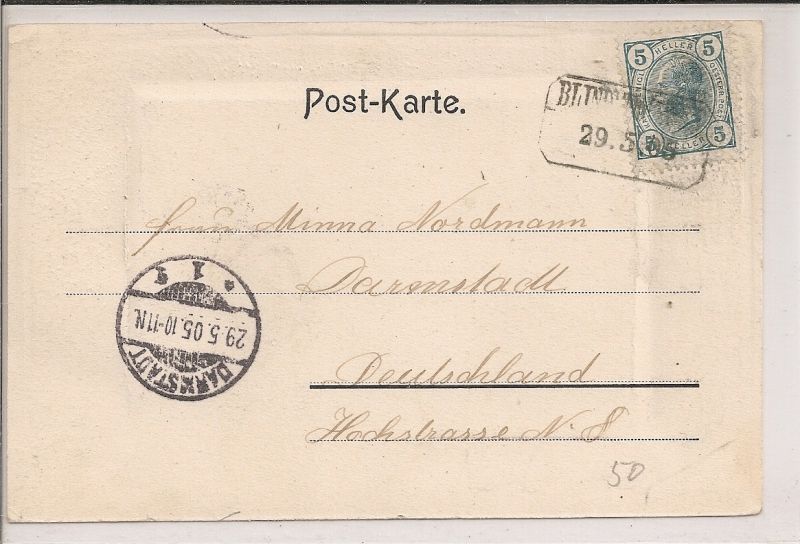 Post-Karte.
5 HELLER 5
5 HELLER
29.5.05
Frau Minna Nordmann
Darmstadt
Deutschland
Hochstrasse N. 8
DARMSTADT
29.5.05.10-11N.
* 1
50